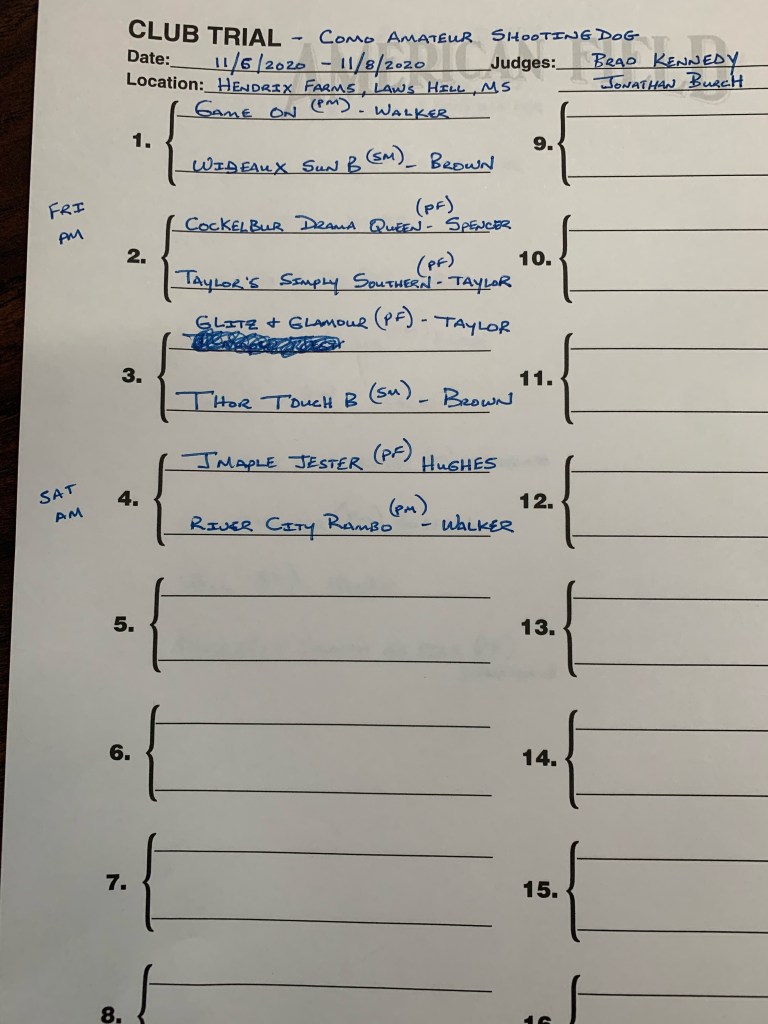 CLUB TRIAL - COMO AMATEUR SHOOTING DOG
AMERICAN FIELD
Date: 11/6/2020 - 11/8/2020 Judges: BRAD KENNEDY
Location: HENDRIX FARMS, LAWS HILL, MS JONATHAN BURCH
1. GAME ON (PM) - WALKER
WIDEAUX SUN B (SM) - BROWN
FRI AM
2. COCKELBUR DRAMA QUEEN (PF) - SPENCER
TAYLOR'S SIMPLY SOUTHERN (PF) - TAYLOR
3. GLITZ + GLAMOUR (PF) - TAYLOR
THOR TOUCH B (SM) - BROWN
SAT AM
4. JMAPLE JESTER (PF) HUGHES
RIVER CITY RAMBO (PM) - WALKER
5.
6.
7.
8.
9.
10.
11.
12.
13.
14.
15.
16.